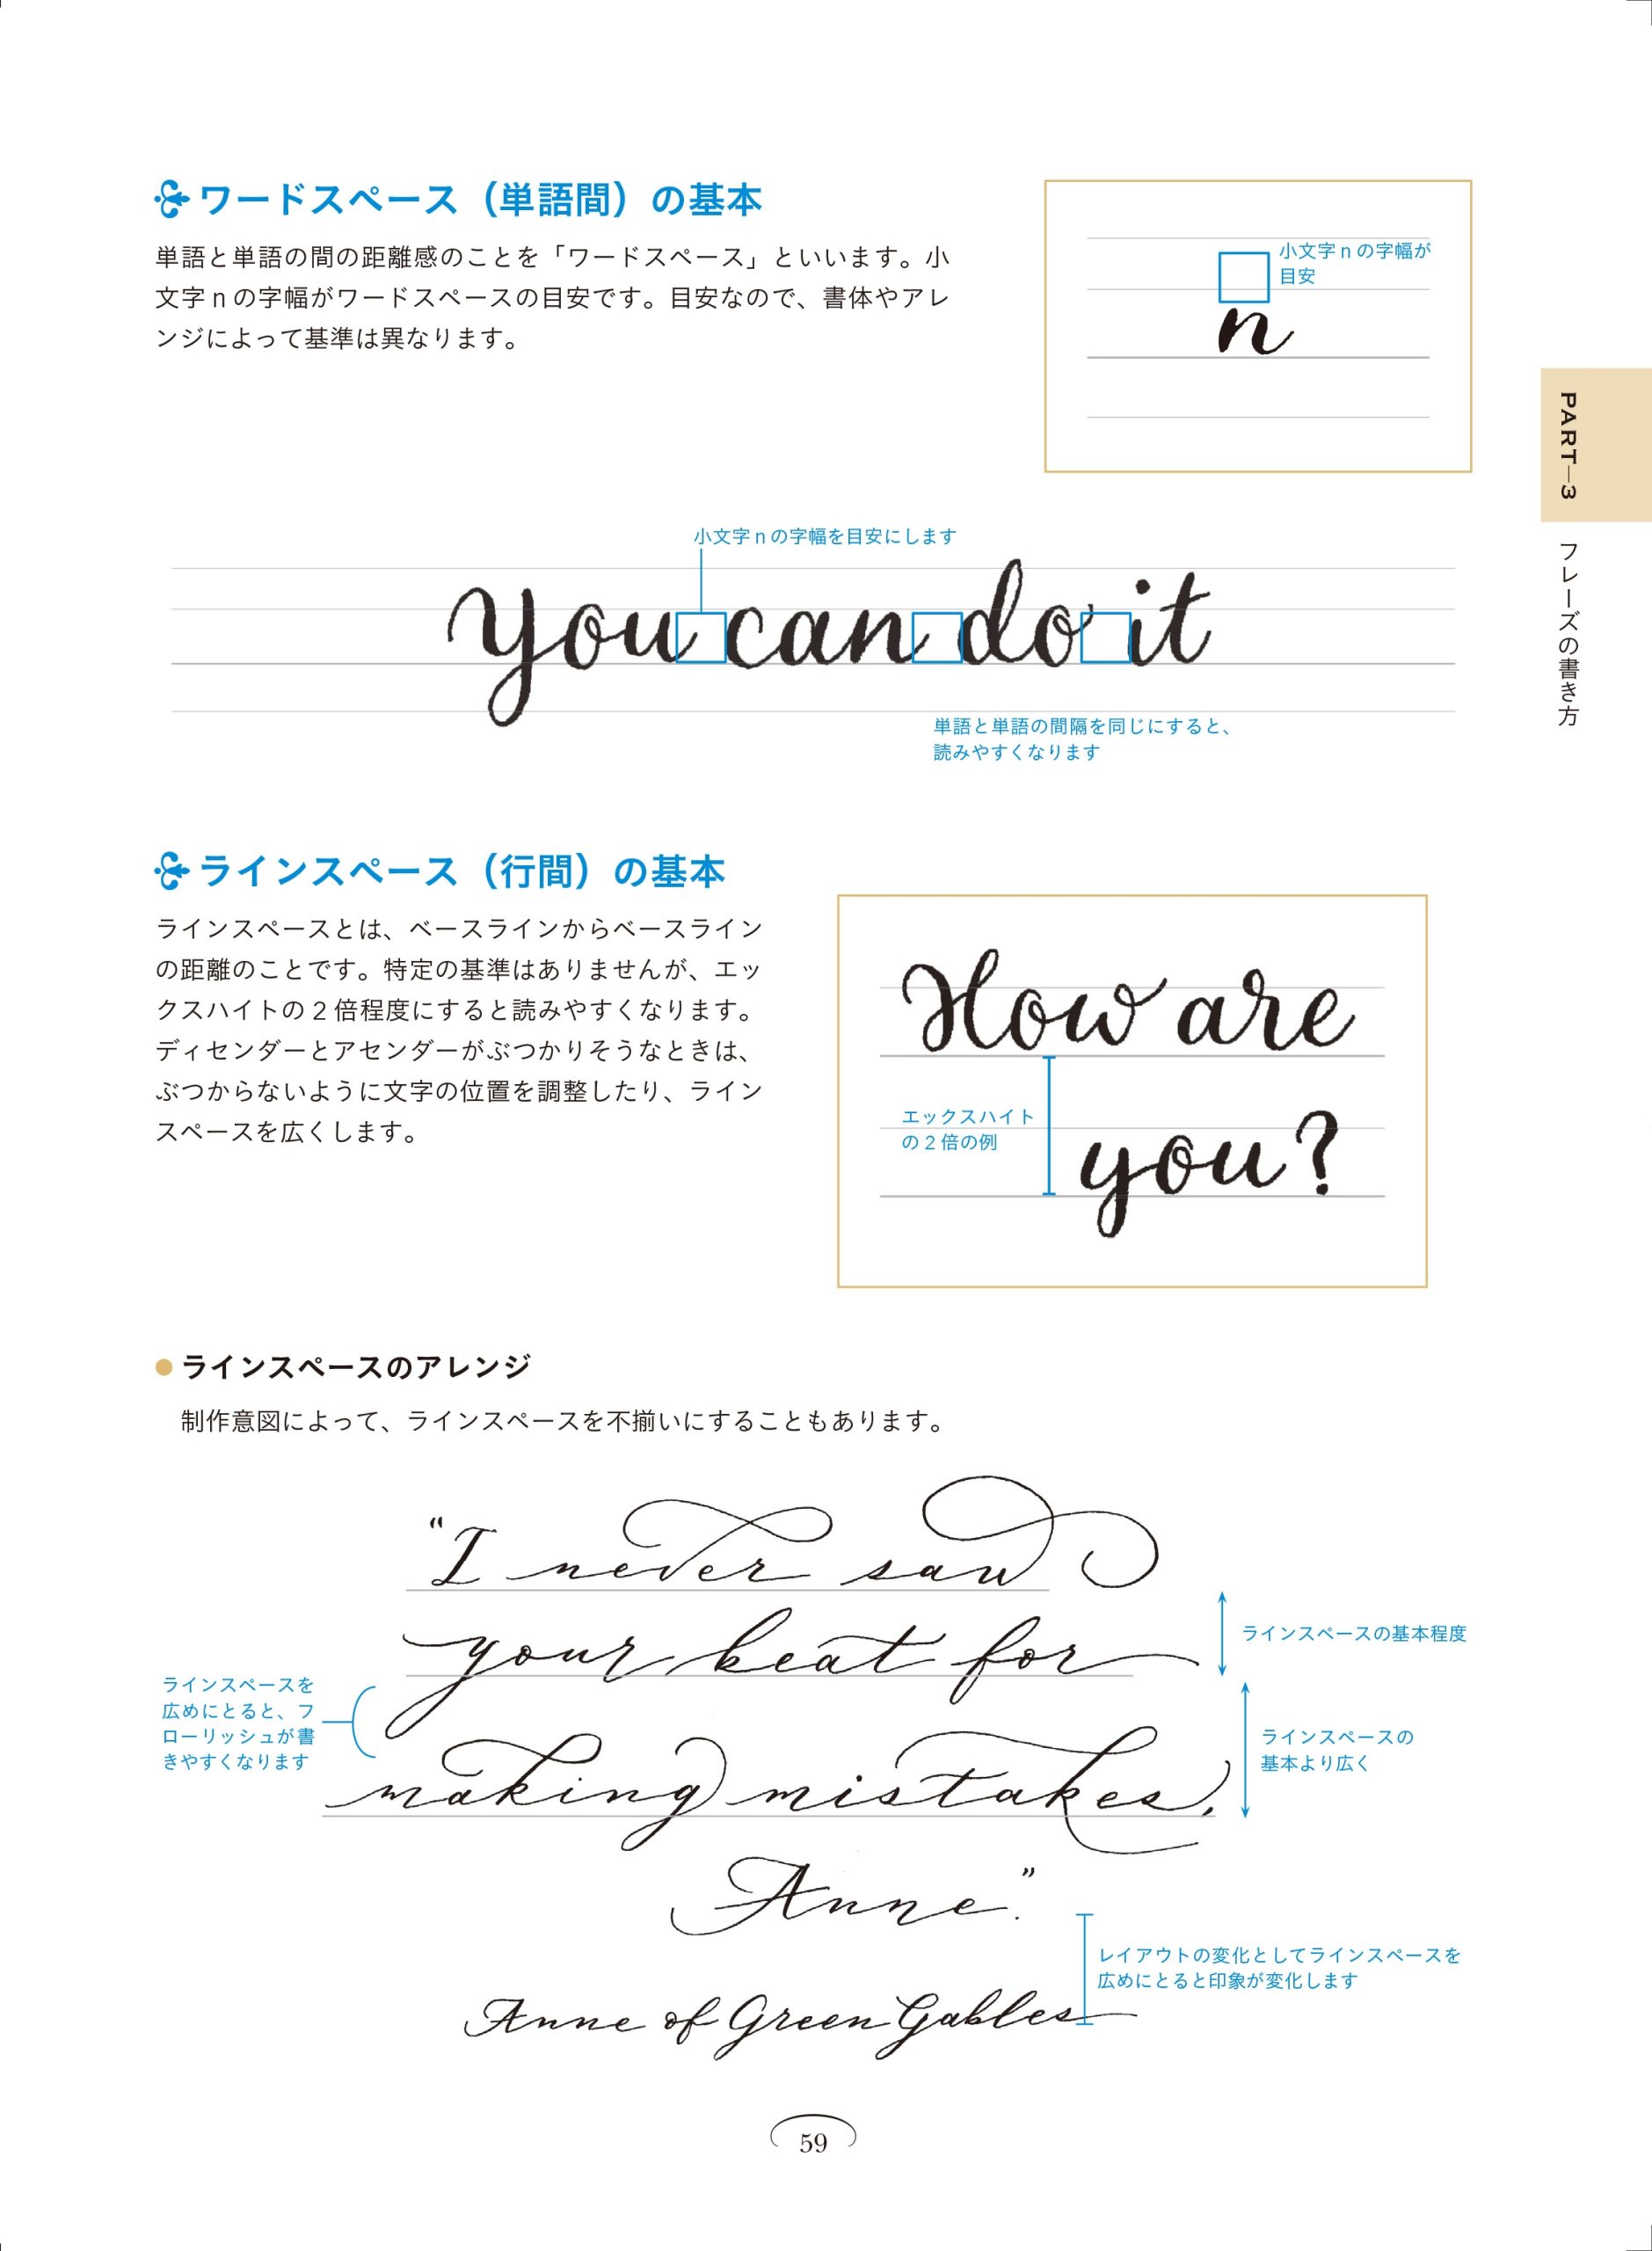 ワードスペース（単語間）の基本
単語と単語の間の距離感のことを「ワードスペース」といいます。小
文字nの字幅がワードスペースの目安です。目安なので、書体やアレ
ンジによって基準は異なります。
小文字nの字幅が
目安
n
PART-3 フレーズの書き方
小文字nの字幅を目安にします
you can do it
単語と単語の間隔を同じにすると、
読みやすくなります
ラインスペース（行間）の基本
ラインスペースとは、ベースラインからベースライン
の距離のことです。特定の基準はありませんが、エッ
クスハイトの2倍程度にすると読みやすくなります。
ディセンダーとアセンダーがぶつかりそうなときは、
ぶつからないように文字の位置を調整したり、ライン
スペースを広くします。
How are
エックスハイト
の2倍の例
you?
ラインスペースのアレンジ
制作意図によって、ラインスペースを不揃いにすることもあります。
“I never saw
ラインスペースの基本程度
your beat for
ラインスペースを
広めにとると、フ
ローリッシュが書
きやすくなります
ラインスペースの
基本より広く
making mistakes,
Anne.”
レイアウトの変化としてラインスペースを
広めにとると印象が変化します
Anne of Green Gables
59